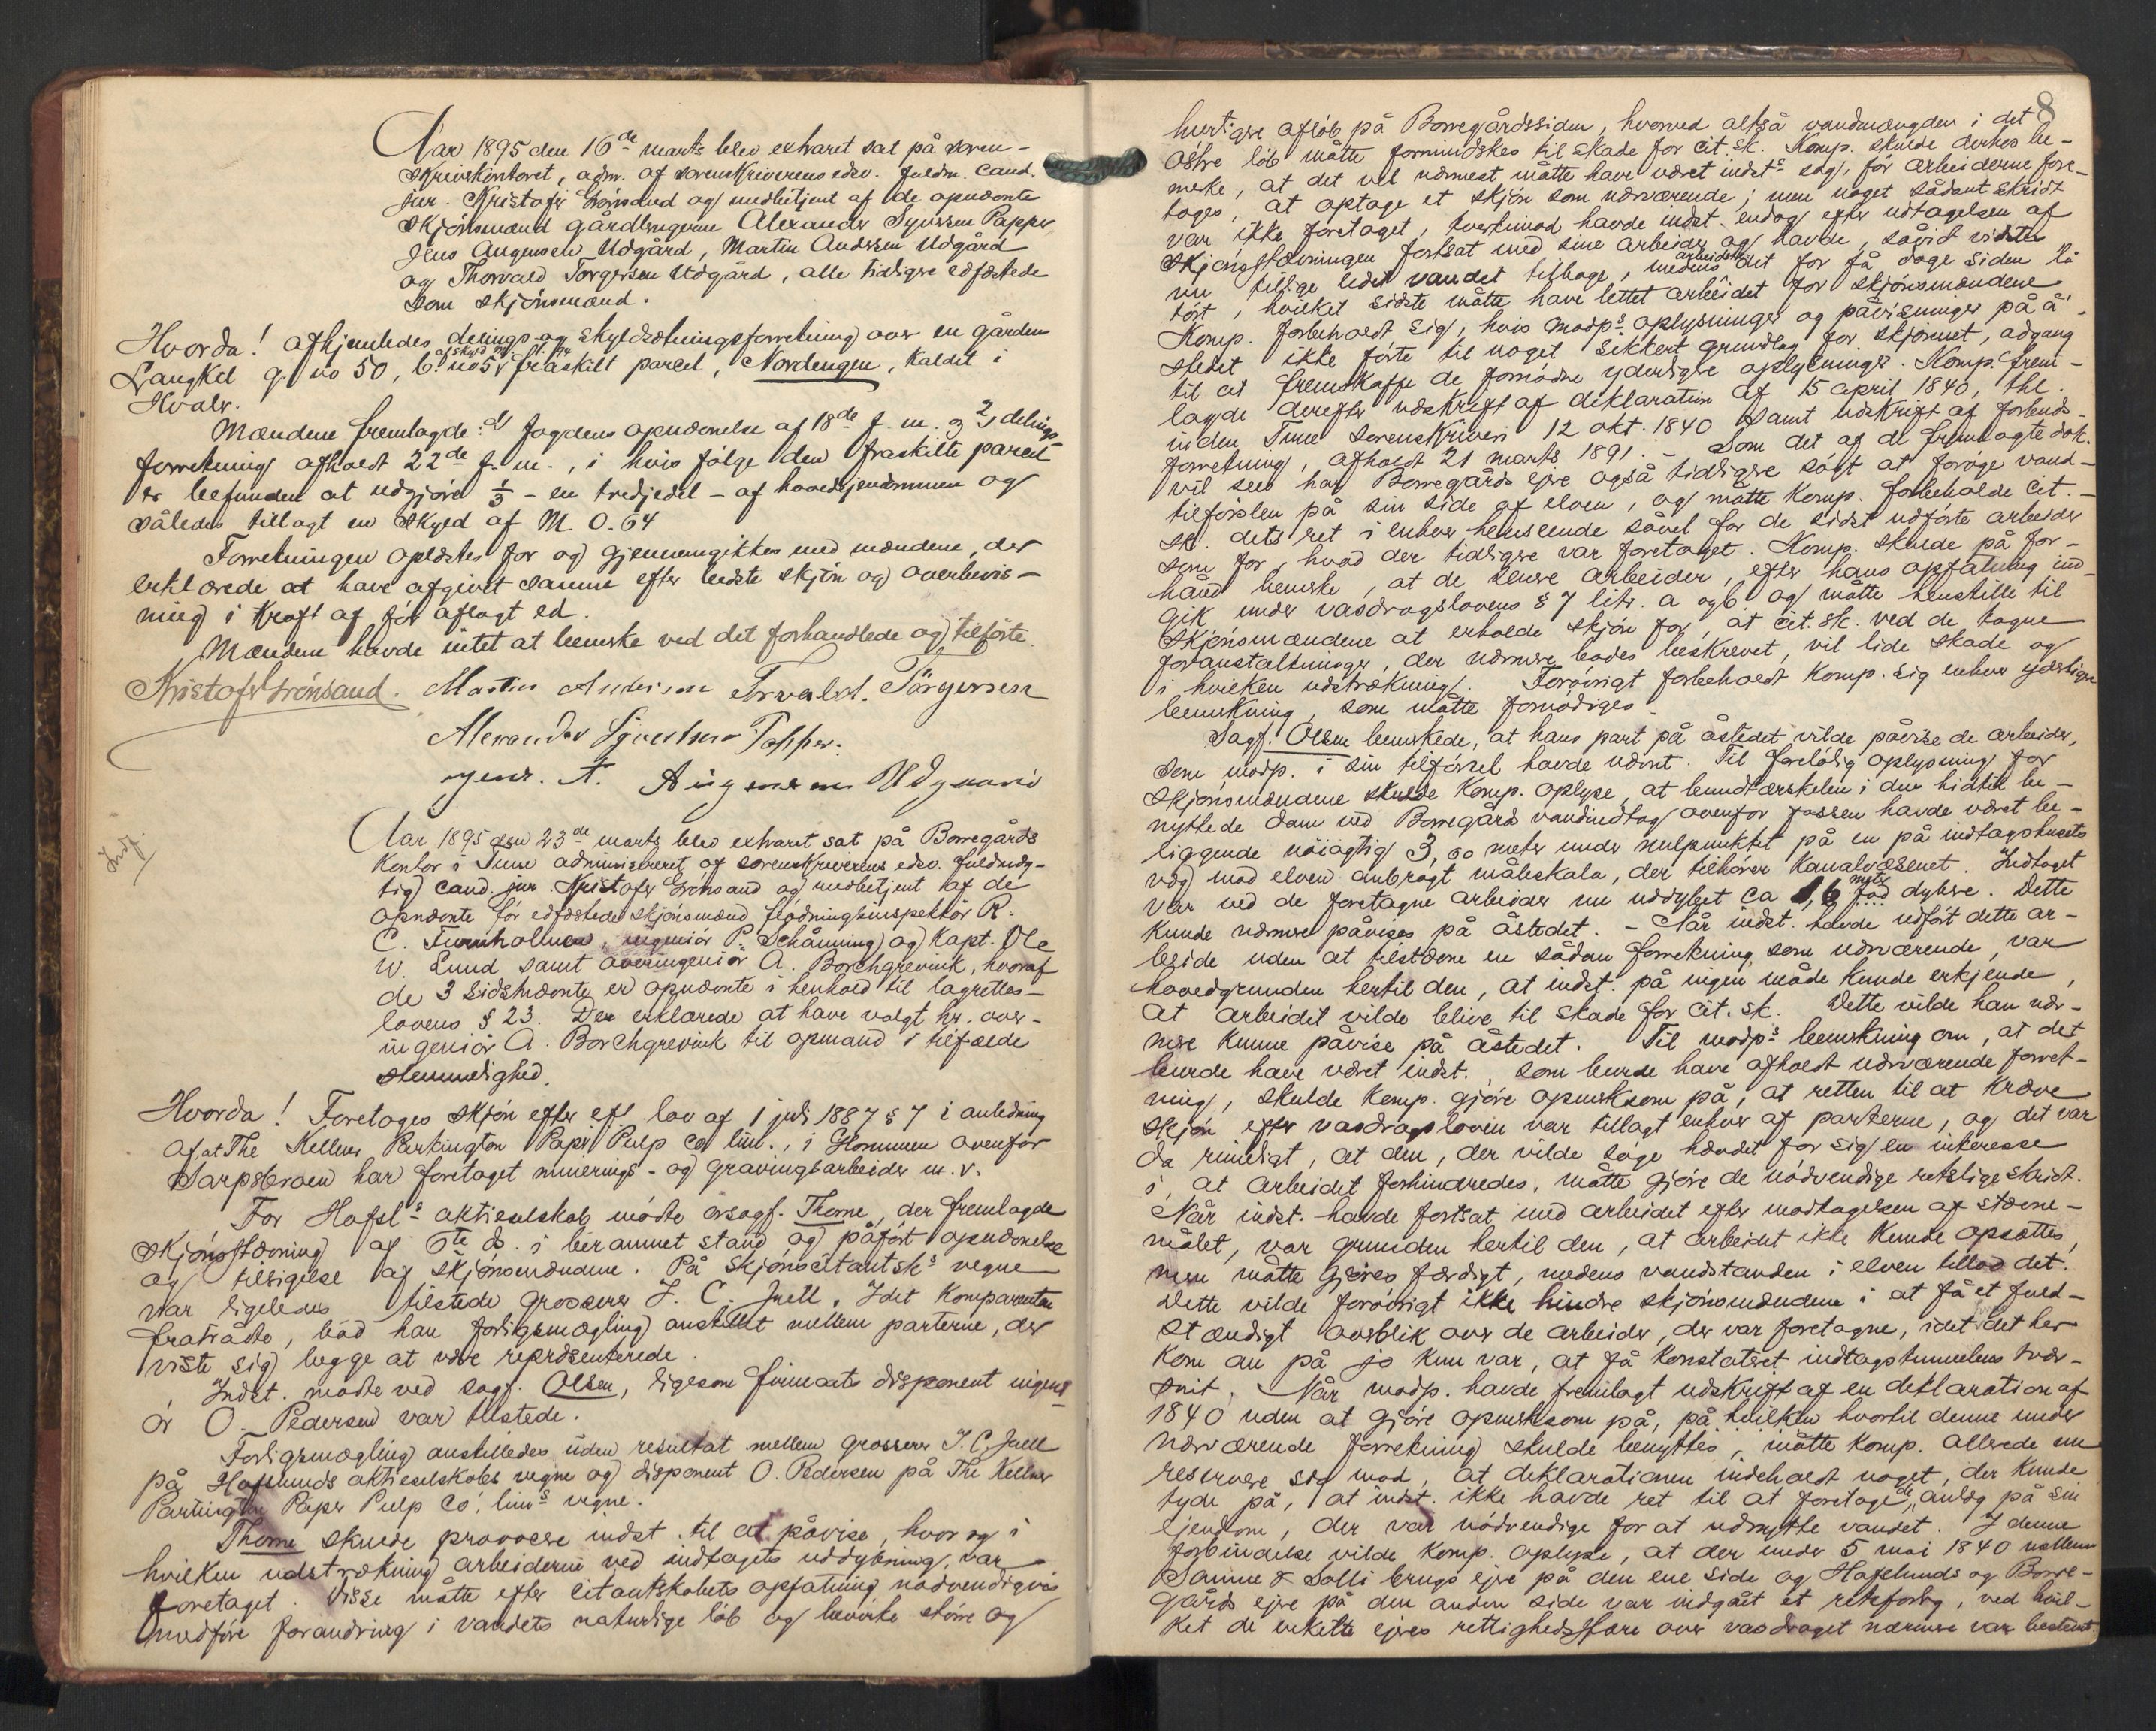 Aar 1895 den 16de marts blev extraret sat på soren-
skriverkontoret, adm. af sorenskriverens edsv. fuldm. cand.
jur. Kristofer Grönsand og medbetjent af de opnævnte
skjönsmænd gårdbrugerne Alexander Syversen Papper
Jens Augensen Udgård, Martin Andersen Udgård
og Thorvald Torgersen Udgård, alle tidligere edfæstede
som skjönsmænd.
Hvorda! afhjemledes delings- og skyldsætningsforretning over en gården
Langkil g. no 50, b. no 5 af skyld m. fraskilt parcel, Nordengen, kaldet i
Hvaler.
Mændene fremlagde: 1) fogdens opnævnelse af 18de f. m. og 2) delings-
forretning afholdt 22de f. m., i hvis fölge den fraskilte parcel
er befunden at udgjöre 1/3 - en tredjedel - af hovedejendommen og
således tillagt en skyld af M. 0.64
Forretningen oplæstes for og gjennemgikkes med mændene, der
erklærede at have afgivet samme efter bedste skjön og overbevis-
ning i kraft af för aflagt ed.
Mændene havde intet at bemerke ved det forhandlede og tilförte.
Kristofer Grönsand. Martin Andersen Torvald. Törgersen
Alexander Syvertsen Papper.
Jens. A. Augensen Udgaard
Indf.
Aar 1895 den 23de marts blev extraret sat på Borregårds
kontor i Tune administreret af sorenskriverens edsv. fuldmæg-
tig cand. jur. Kristofer Grönsand og medbetjent af de
opnævnte för edfæstede skjönsmænd flödningsinspektör R.
C. Furuholmen, ingeniör P. Schånning og kapt. Ole
W. Lund samt overingeniör A. Borchgrevink, hvoraf
de 3 sidstnævnte er opnævnte i henhold til lagrettes-
lovens § 23. De erklærede at have valgt hr. over-
ingeniör A. Borchgrevink til opmand i tilfælde
stemmelighed.
Hvorda! Foretages skjön efter efl lov af 1 juli 1887 § 7 i anledning
af, at The Kellner Partington Paper Pulp Co lim., i Glommen ovenfor
Sarpsbroen har foretaget minerings- og gravingsarbeider m. v.
For Hafsls aktieselskab mödte orsagf. Thorne, der fremlagde
skjönsstævning af 6te ds. i beramnet stand og påfört opnævnelse
og tilsigelse af skjönsmændene. På skjönscitantsks vegne
var ligeledes tilstede grosserer J. C. Juell. Idet komparenten
fratrådte, bad han forligsmægling anstillet mellem parterne, der
viste sig begge at være repræsenterede.
Indst. mödte ved sagf. Olsen, ligesom firmaets disponent ingeni-
ör O. Pedersen var tilstede.
Forligsmægling anstilledes uden resultat mellem grosserer J. C. Juell
på Hafslunds aktieselskabs vegne og disponent O. Pedersen på The Kellner
Partington Paper Pulp Co. lims vegne.
Thorne skulde provocere indst. til at påvise, hvor og i
hvilken udstrækning arbeiderne ved indtagets uddybning, var
foretaget. Disse måtte efter citantskabets opfatning nödvendigvis
medföre forandring i vandets naturlige löb og bevirke större og
8
hurtigere aflöb på Borregårdssiden, hvorved altså vandmængden i det
östre löb måtte formindskes til skade for cit. sk. Komp. skulde derhos be-
merke, at det vel nærmest måtte have været indsts sag, för arbeiderne fore-
toges, at optage et skjön som nærværende; men noget sådant skridt
var ikke foretaget, tvertimod havde indst. endog efter udtagelsen af
skjönsstævningen fortsat med sine arbeider og havde, såvidt vidstes
nu tillige ledet vandet tilbage, medens arbeidet for få dage siden lå
tört, hvilket sidste måtte have lettet arbeidet for skjönsmændene
Komp. forbeholdt sig, hvis modps oplysninger og påvisninger på å-
stedet ikke förte til noget sikkert grundlag for skjönnet, adgang
til at fremskaffe de fornödne yderligere oplysninger. Komp. frem-
lagde derefter udskrift af deklaration af 15 april 1840, thl.
inden Tune sorenskriveri 12 okt. 1840 samt udskrift af forbuds-
forretning, afholdt 21 marts 1891. - Som det af de fremlagte dok.
vil sees har Borregårds ejere også tidligere sögt at foröge vand-
tilförslen på sin side af elven, og måtte komp. forbeholde cit.-
sk. dets ret i enhver henseende såvel for de sidst udförte arbeider
som for, hvad der tidligere var foretaget. Komp. skulde på for-
hånd bemerke, at de senere arbeider, efter hans opfatning ind-
gik under vasdragslovens § 7 litr. a og b og måtte henstille til
skjönsmændene at erholde skjön for, at cit. sk. ved de tagne
foranstaltninger, der nærmere bades beskrevet, vil lide skade og
i hvilken udstrækning. Forövrigt forbeholdt komp. sig enhver yderligere
bemerkning, som måtte fornödiges.
Sagf. Olsen bemerkede, at hans part på åstedet vilde påvise de arbeider,
som modp. i sin tilförsel havde nævnt. Til forelöbig oplysning for
skjönsmændene skulde komp. oplyse, at bundtærskelen i den hidtil be-
nyttede dam ved Borregård vandindtag ovenfor fossen havde været be-
liggende nöiagtig 3,60 meter under nulpunktet på en på indtagshusets
væg mod elven anbragt måleskala, der tilhörer kanalvæsenet. Indtaget
var ved de foretagne arbeider nu uddybet ca 1,6 meter dybere. Dette
kunde nærmere påvises på åstedet. - Når indst. havde udfört dette ar-
beide uden at tilstævne en sådan forretning som nærværende, var
hovedgrunden hertil den, at indst. på ingen måde kunde erkjende,
at arbeidet vilde blive til skade for cit. sk. Dette vilde han nær-
mere kunne påvise på åstedet. Til modps bemerkning om, at det
burde have været indst., som burde have afholdt nærværende forret-
ning, skulde komp. gjöre opmerksom på, at retten til at kræve
skjön efter vasdragsloven var tillagt enhver af parterne, og det var
da rimeligt, at den, der vilde söge hævdet for sig en interesse
i, at arbeidet forhindredes, måtte gjöre de nödvendige retslige skridt.
Når indst. havde fortsat med arbeidet efter modtagelsen af stævne-
målet, var grunden hertil den, at arbeidet ikke kunde opsættes,
men måtte gjöres færdigt, medens vandstanden i elven tillod det.
Dette vilde forövrigt ikke hindre skjönsmændene i at få et fuld-
stændigt overblik over de arbeider, der var foretagne, idet det her
kom an på jo kun var, at få konstateret indtagstunnelens tvær-
snit. Når modp. havde fremlagt udskrift af en deklaration af
1840 uden at gjöre opmerksom på, på hvilken hvortil denne under
nærværende forretning skulde benyttes, måtte komp. allerede nu
reservere sig mod, at deklarationen indeholdt noget, der kunde
tyde på, at indst. ikke havde ret til at foretage de anlæg på sin
ejendom, der var nödvendige for at udnytte vandet. I denne
forbindelse vilde komp. oplyse, at der under 5 mai 1840 mellem
Sanne & Solli brugs ejere på den ene side og Hafslunds og Borre-
gårds ejere på den anden side var indgået et retsforlig, ved hvil-
ket de enkelte ejeres rettighedssfære over vasdraget nærmere var bestemt.